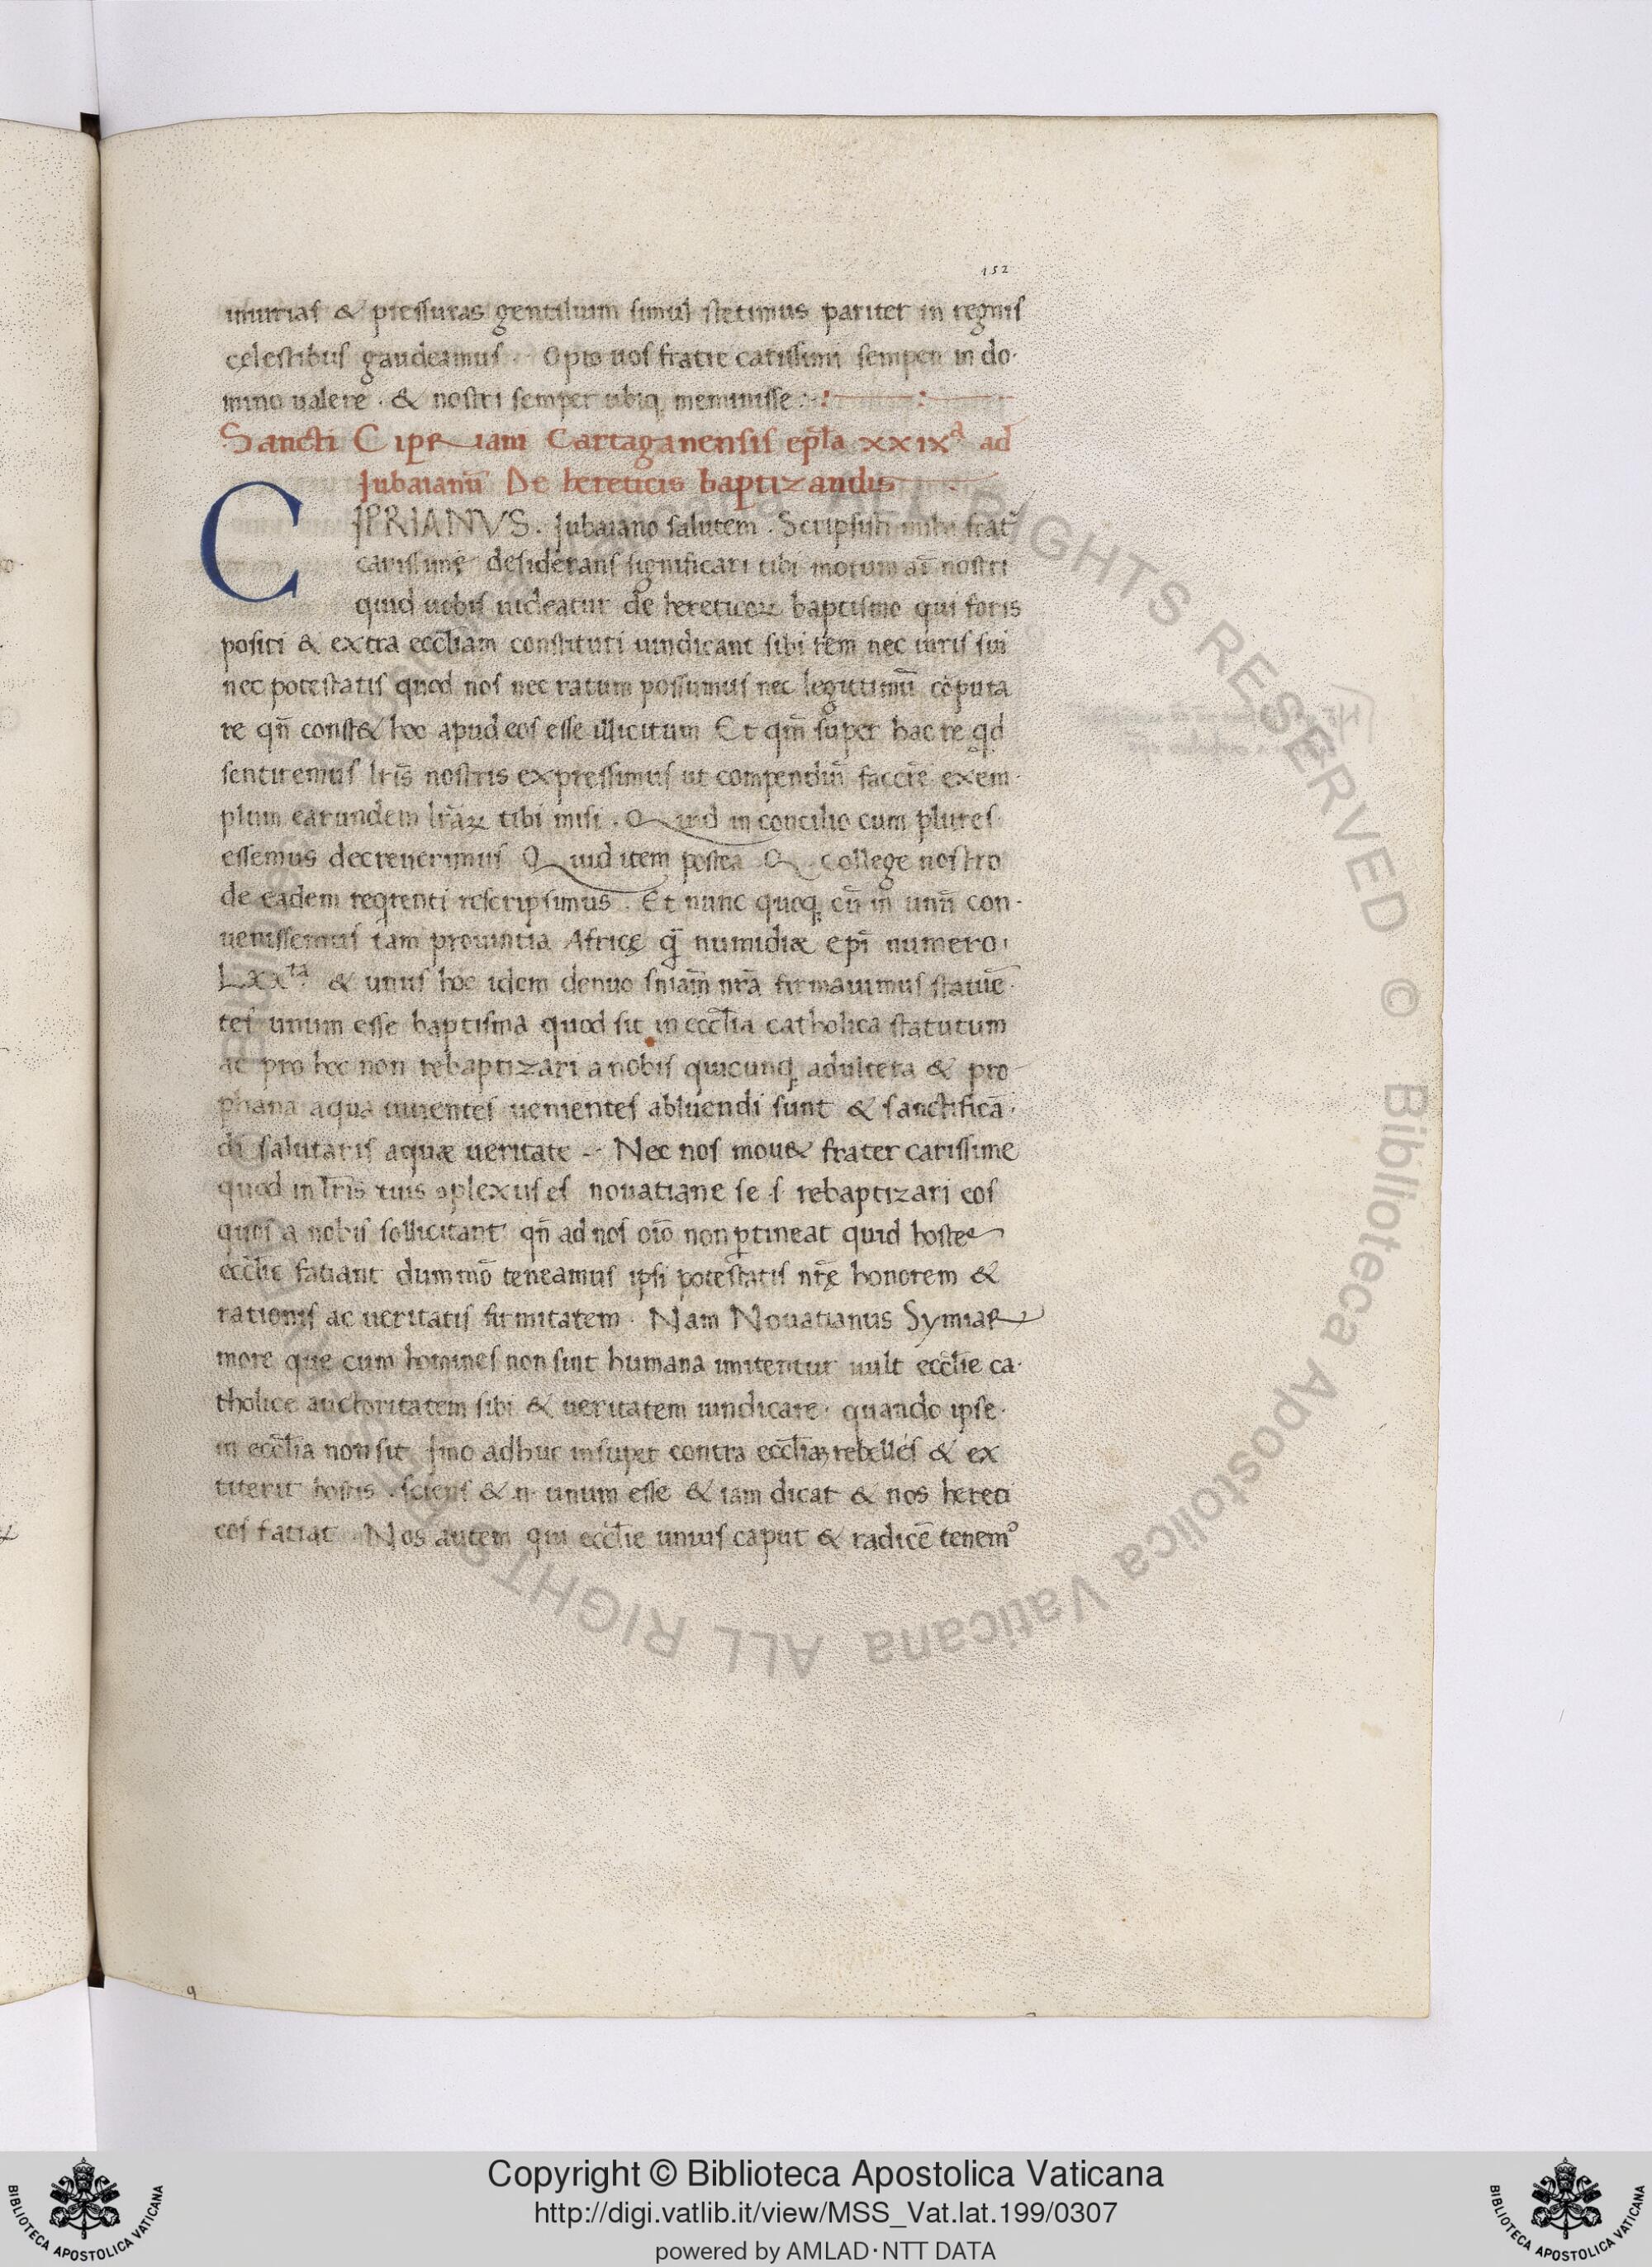 152
iniurias & pressuras gentilium simul stetimus pariter in regnis
cęlestibus gaudeamus · Opto uos fratre carissimi semper in do·
mino ualere · & nostri semper ubiq; meminisse : · :
Sancti Cipriani Cartaganensis ep̄la xxixᵃ ad
Jubaianū De hereticis baptizandis
CIPRIANVS . Jubaiano salutem . Scripsisti mihi frat̄
carissime desiderans significari tibi motum aī nostri
quid uobis uideatur de hereticoꝝ baptismo qui foris
positi & extra eccl̄iam constituti uindicant sibi rem nec iuris sui
nec potestatis quod nos nec ratum possumus nec legittimū cōputa
re qn̄ const& hoc apud eos esse illicitum Et qm̄ super hac re qd
sentiremus lr̄is nostris expressimus ut compendiū faccrē exem·
plum earundem lr̄aꝝ tibi misi . Quid in concilio cum plures
essemus decreuerimus Quid item postea Q. college nostro
de eadem reqrenti rescripsimus . Et nunc quoq; cū in unū con·
uenissemus tam prouintia Africę q̄ numidiæ epī numero
Lxxᵗᵃ & unus hoc idem denuo sn̄iam nr̄a firmauimus statuē·
tes unum esse baptisma quod sit in eccl̄ia catholica statutum
ac pro hoc non rebaptizari a nobis quicunq; adultera & pro
phana aqua uenientes abluendi sunt & sanctificā·
di salutaris aquæ ueritate · Nec nos mou& frater carissime
quod in lr̄is tuis ↄplexus es nouatiane se s rebaptizari eos
quos a nobis sollicitant qn̄ ad nos oīo non ꝑtineat quid hostes
eccl̄ie fatiant dum mō teneamus ipsi potestatis nr̄ę honorem &
rationis ac ueritatis firmitatem · Nam Nouatianus Symiaꝝ
more que cum homines non sint humana imitentur uult eccl̄ie ca·
tholice auctoritatem sibi & ueritatem uindicare · quando ipse·
in eccl̄ia non sit Jmo adhuc insuper contra eccl̄iaꝫ rebelles & ex
titerit hostis . sciens & n unum esse & iam dicat & nos hereti
cos fatiat · Nos autem qui eccl̄ie unius caput & radicē tenem⁹
9
© Biblioteca Apostolica Vaticana ALL RIGHTS RESERVED
Copyright © Biblioteca Apostolica Vaticana
http://digi.vatlib.it/view/MSS_Vat.lat.199/0307
powered by AMLAD·NTT DATA
BIBLIOTECA APOSTOLICA VATICANA
BIBLIOTECA APOSTOLICA VATICANA